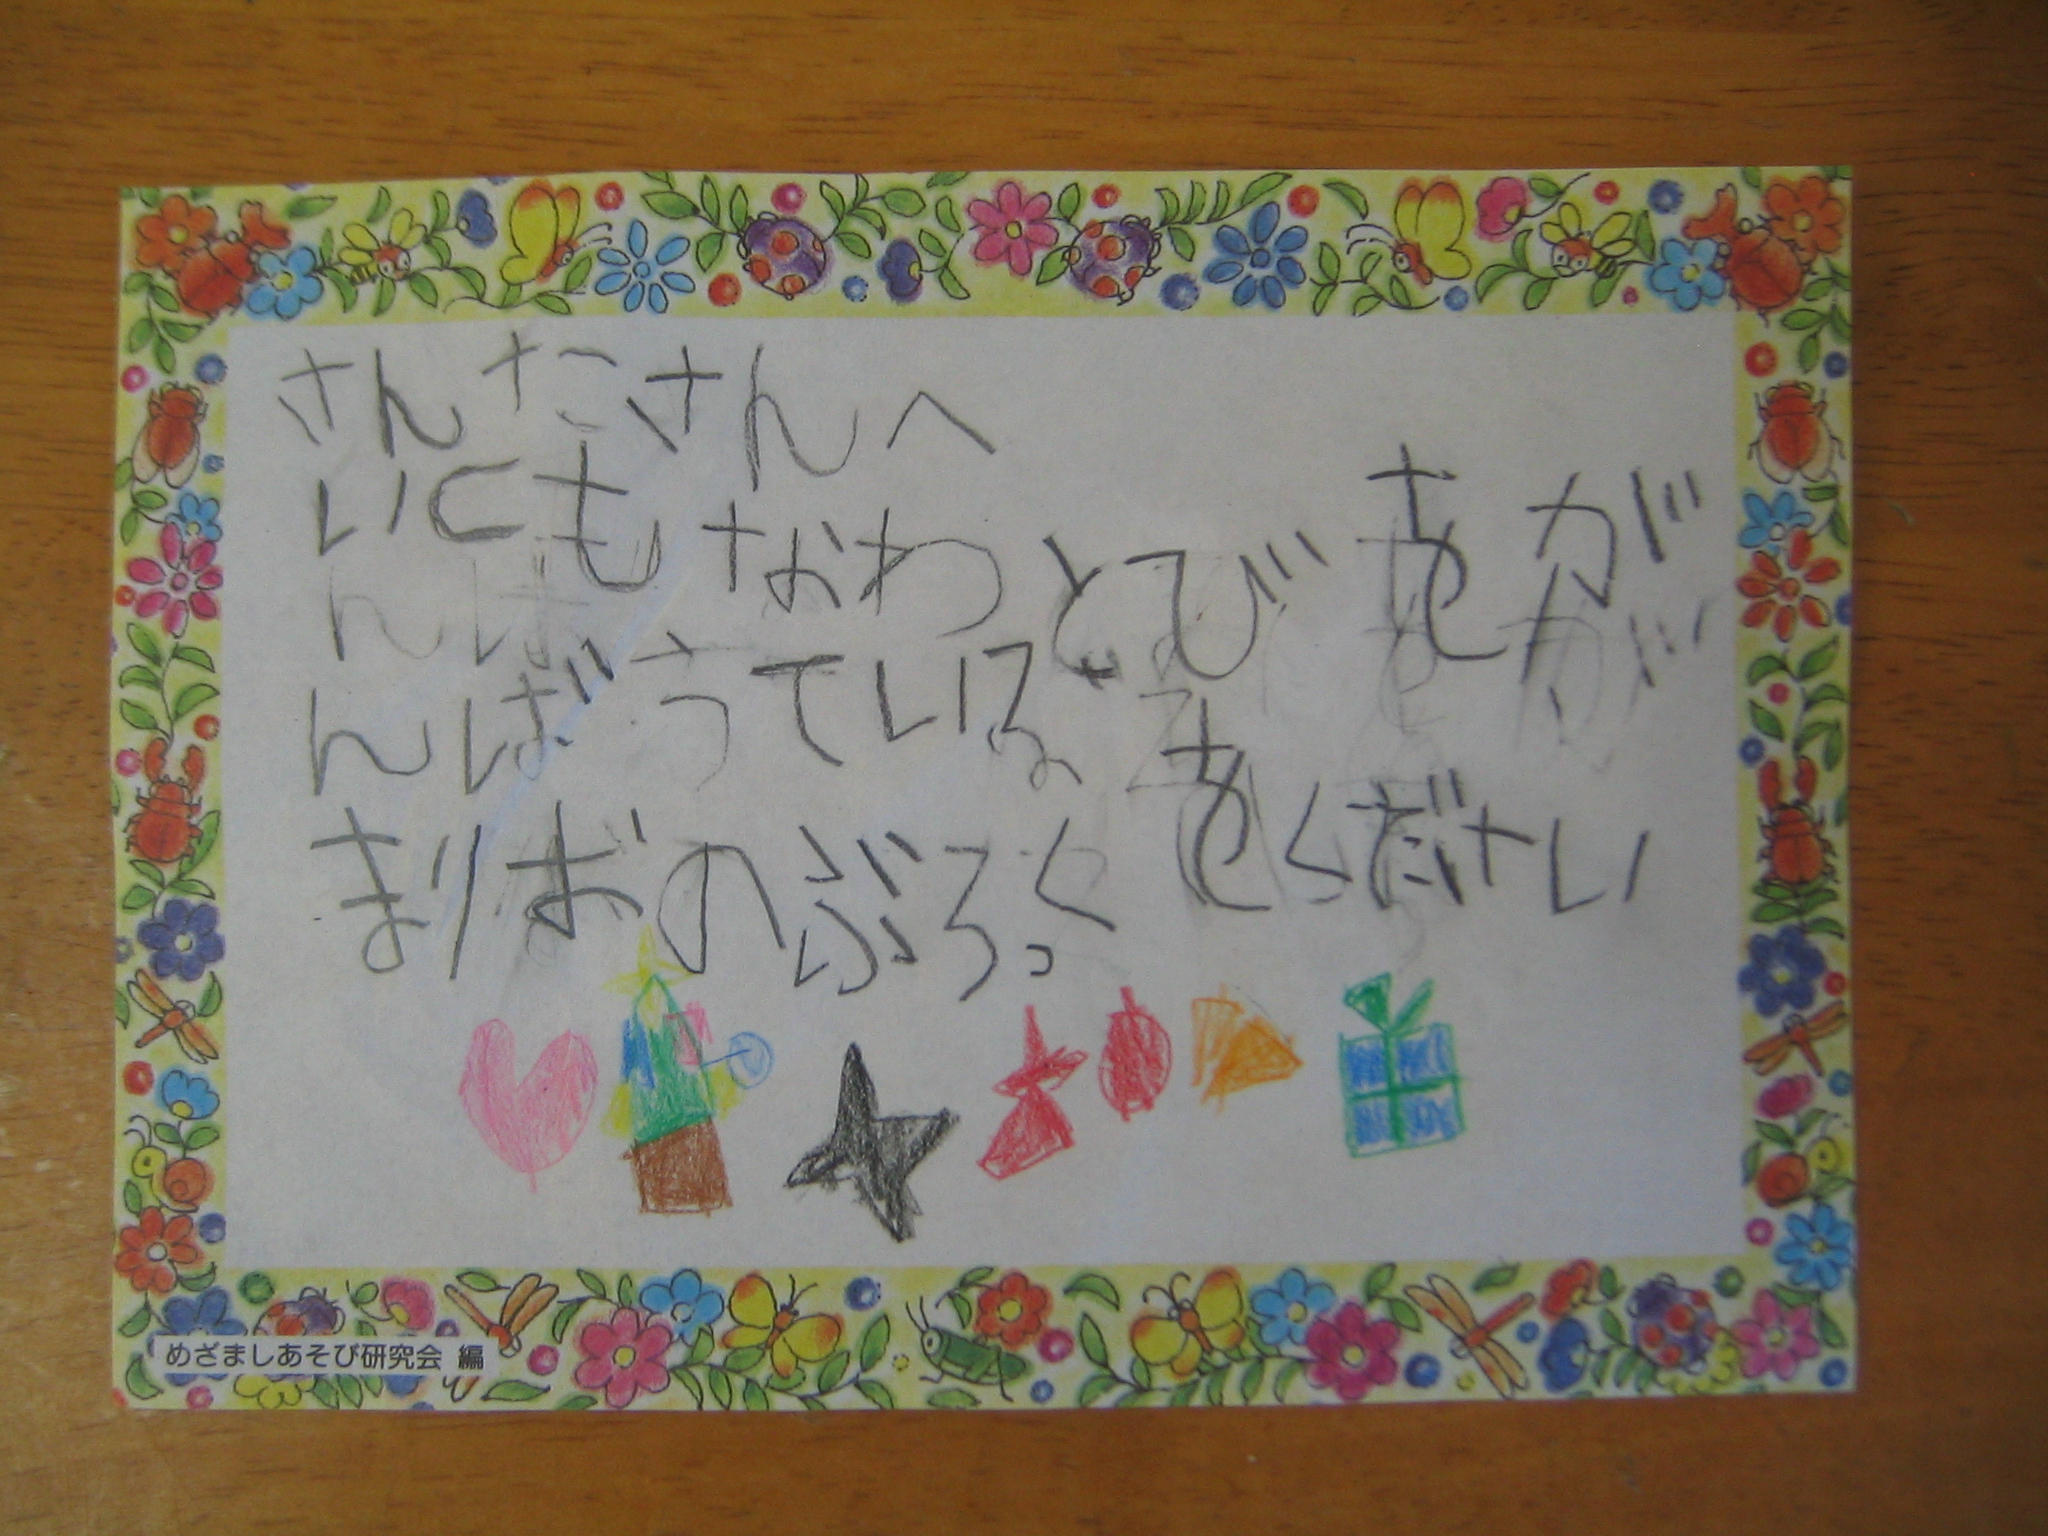 さんたさんへ
いつもなわとびをが
んばうている。
まりおのぶろっくをください
めざましあそび研究会 編